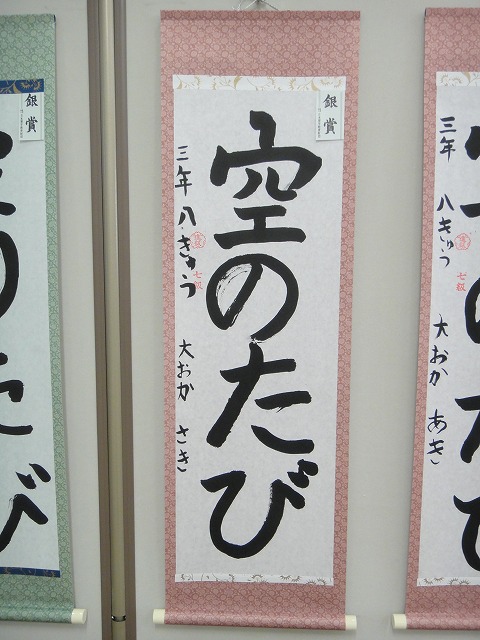 銀賞
空のたび
三年 八きゅう 大おか さき
七級
銀賞
三年 八きゅう 大おか あき
七級